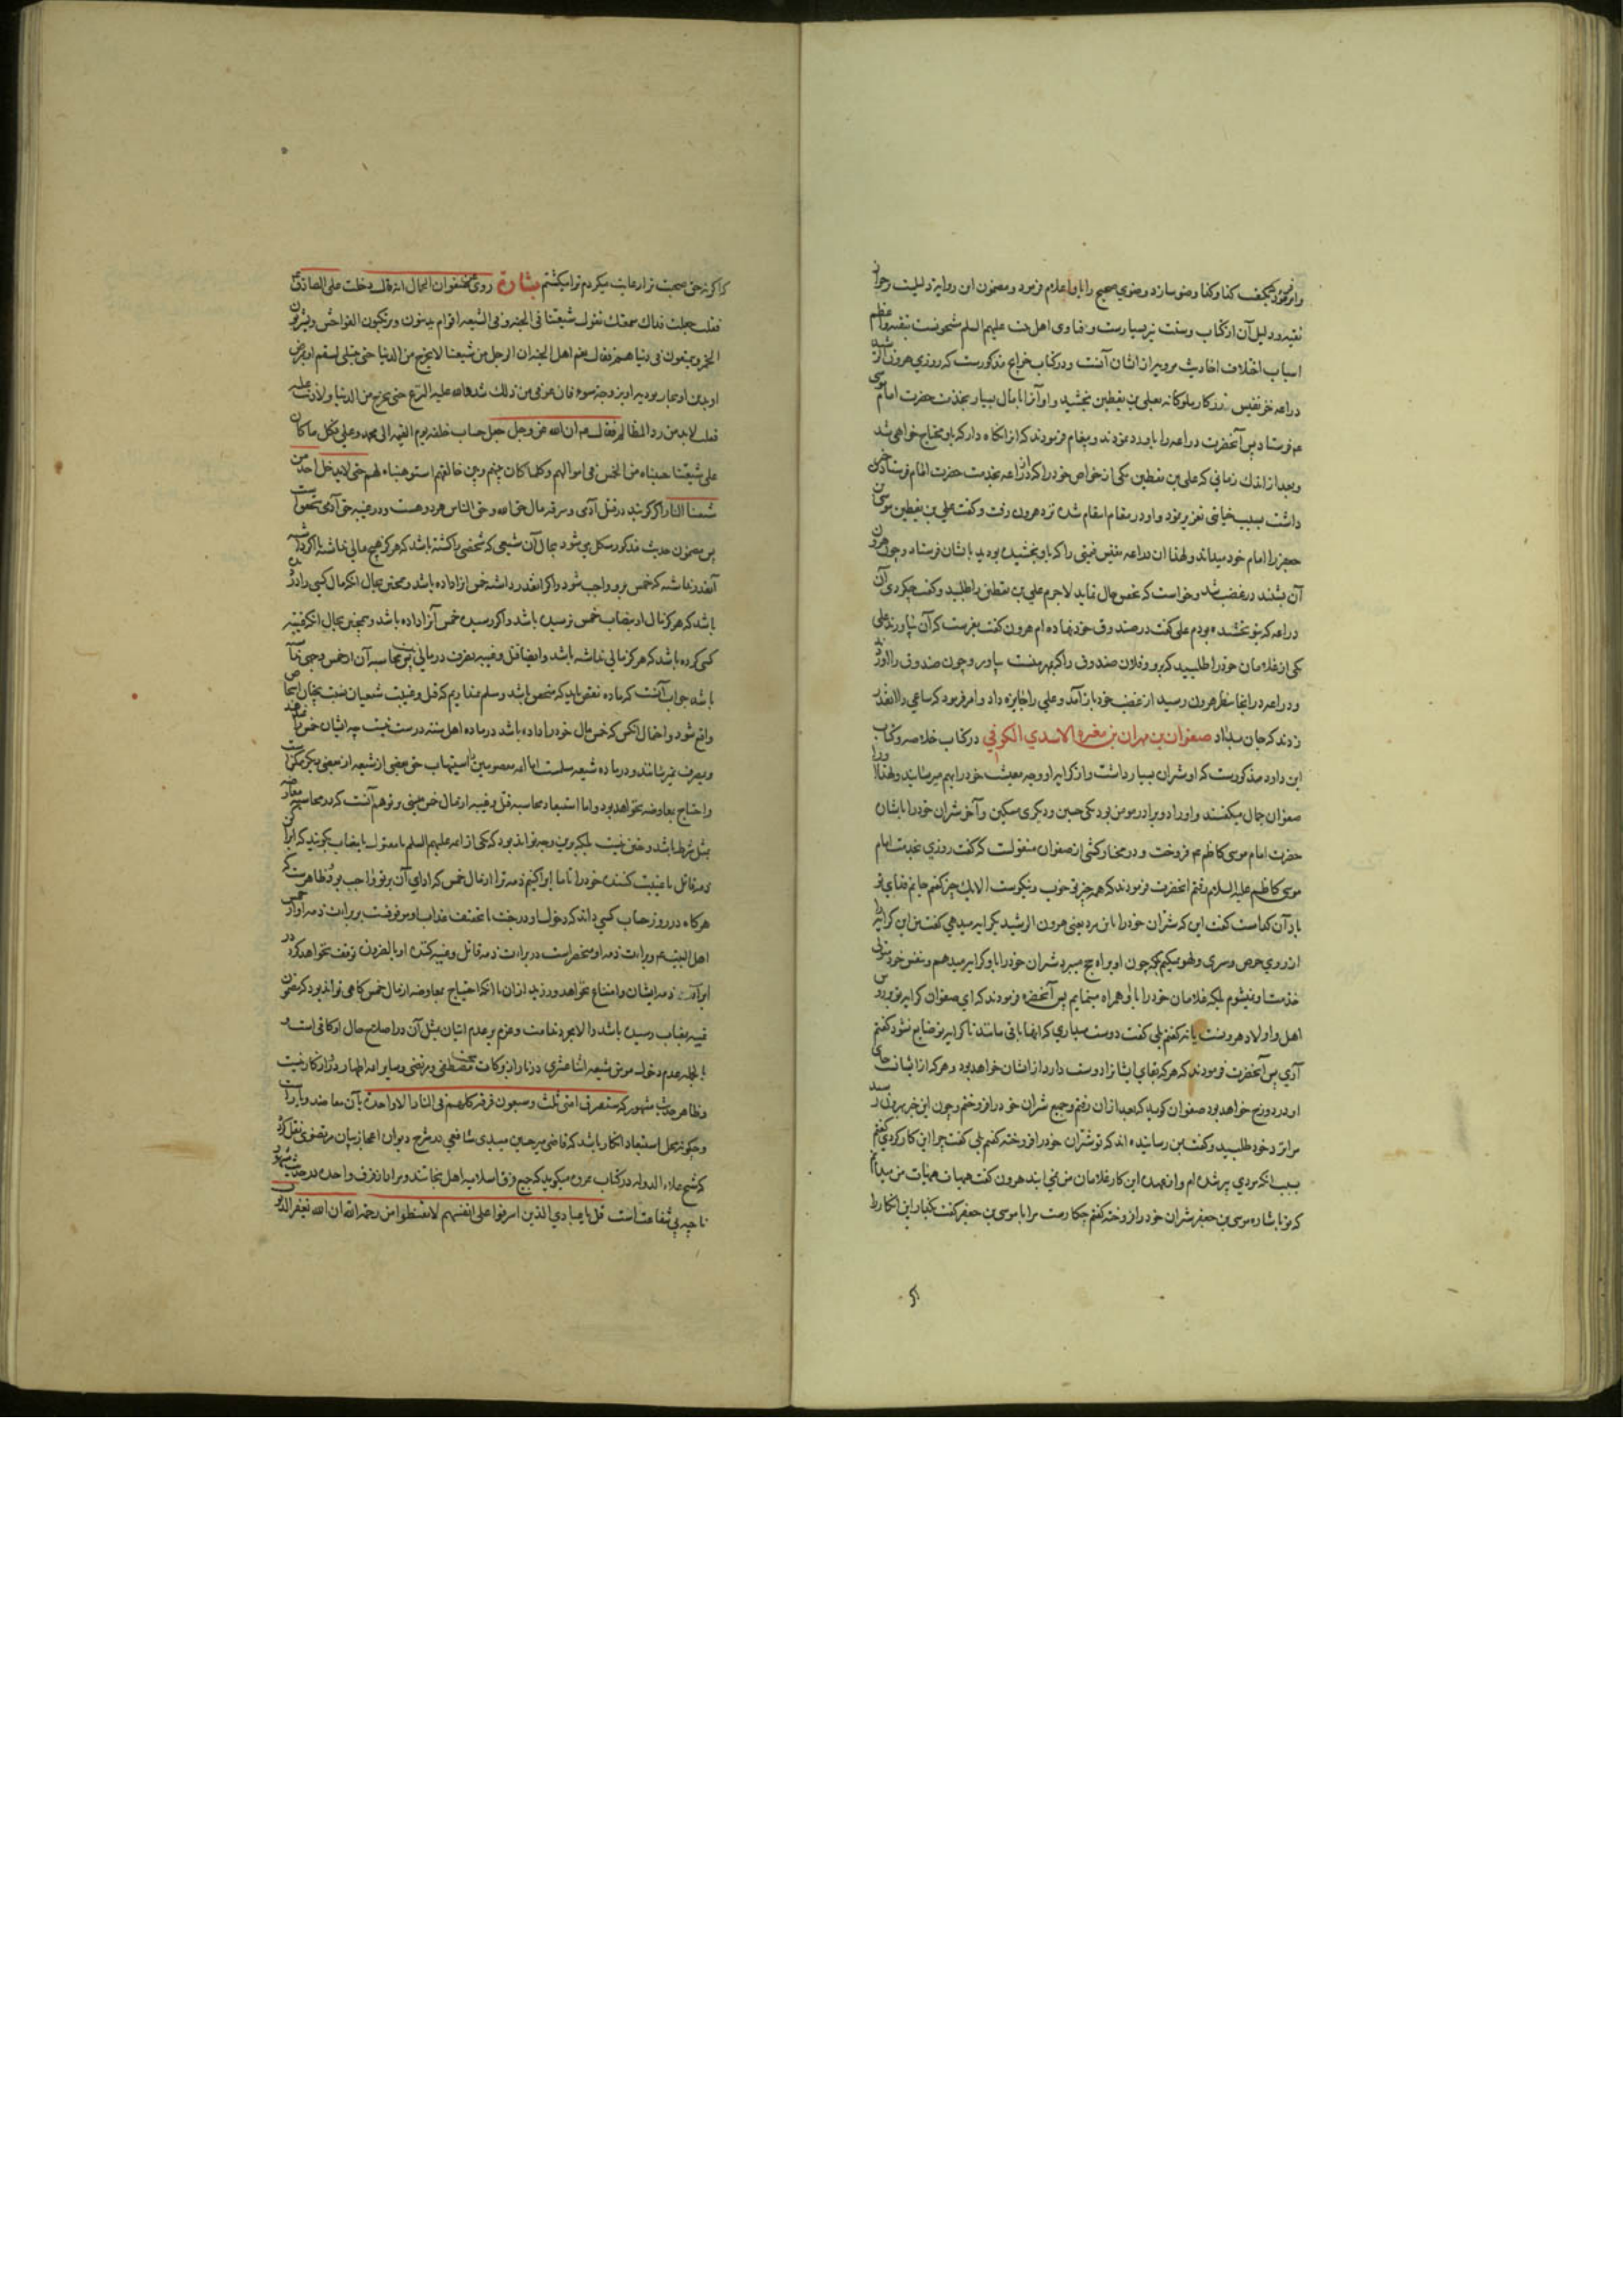 وامر نمود که بگفت کذا وکذا وضو سازد و وضوی صحیح را باو اعلام فرمود ومضمون این روایة دلیلست وجواز
تقیه ودلیل آن از کتاب وسنت نیز بسیارست وفتاوی اهل بیت علیهم السلم مشحونست بتقیه واعظم
اسباب اختلاف احادیث مرویه از ایشان آنست ودر کتاب خرایج مذکورست که روزی هرون الرشید
دراعه خز نفیس زرکار ملوکانه بعلی بن یقطین بخشید واو آنرا با مال بسیار بخدمت حضرت امام موسی
عم فرستاد پس آنحضرت دراعه را باو رد نمودند وپیغام فرمودند که آنرا نگاه دار که باو محتاج خواهی شد
وبعد از اندک زمانی که علی بن یقطین یکی از خواص خود را که از دراعه بخدمت حضرت امام فرستادن خبر
داشت بسبب خیانتی تعزیر نمود واو در مقام انتقام شده نزد هرون رفت وگفت علی بن یقطین موسی بن
جعفر را امام خود میداند ولهذا آن دراعه نفیس قیمتی را که باو بخشیده بودید بایشان فرستاد وچون هرون
آن بشنید در غضب شد وخواست که تفحص حال نماید لاجرم علی بن یقطین را طلبید وگفت چه کردی آن
دراعه که بتو بخشیده بودم علی گفت در صندوق خود نهاده ام هرون گفت بفرست که آن بیاورند علی
یکی از غلامان خود را طلبید که برو وفلان صندوق را که بمهر منست بیاور وچون صندوق را آورد
ودراعه در انجا بنظر هرون رسید از غضب خود باز آمد وعلی را جایزه داد وامر فرمود که ساعی را آنقدر
زدند که جان بداد صفوان بن مهران بن مغیره الاسدی الکوفی در کتاب خلاصه وکتاب
ابن داود مذکورست که او شتران بسیار داشت واز کرایه او وجه معیشت خود را بهم میرسانید ولهذا او را
صفوان جمال میگفتند واو را دو برادر مومن بود یکی حسین ودیگری مسکین وآخر شتران خود را بایشان
حضرت امام موسی کاظم عم فروخت ودر مختار کشی از صفوان منقولست که گفت روزی بخدمت امام
موسی کاظم علیه السلام رفتم آنحضرت فرمودند که همه چیز تو خوب ونیکوست الا یک چیز گفتم جانم فدای تو
باد آن کدامست گفت این که شتران خود را باین مرد یعنی هرون الرشید بکرایه میدهی گفتم من این کرایه را
از روی حرص وسری ولهو نمیکنم بلکه چون او براه حج میرود شتران خود را باو کرایه میدهم وبنفس خود متولی
خدمت او نمیشوم بلکه غلامان خود را با او همراه مینمایم پس آنحضره فرمودند که ای صفوان کرایه تو بر
اهل واولاد هرونست یا نه گفتم بلی گفت دوست میداری که آنها باقی مانند تا کرایه تو ضایع نشود گفتم
آری پس آنحضرت فرمودند که هر که بقای ایشانرا دوست دارد از ایشان خواهد بود وهر که از ایشانست جای
او در دوزخ خواهد بود صفوان گوید که بعد از آن رفتم وجمیع شتران خود را فروختم وچون این خبر بهرون رسید
مرا نزد خود طلبید وگفت بمن رسانیده اند که تو شتران خود را فروخته گفتم بلی گفت چرا این کار کردی گفتم
بسبب آنکه مردی پیر شده ام واز عهده این کار غلامان من نمی آیند هرون گفت هیهات هیهات من میدانم
که تو باشاره موسی بن جعفر شتران خود را فروخته گفتم چکارست مرا با موسی بن جعفر گفت بگذار این انکار را
که اگر نه حق صحبت ترا رعایت میکردم ترا میکشتم بشارة روی عن صفوان الجمال انه قال دخلت علی الصادق عم
فقلت جعلت فداک سمعتک تقول شیعتنا فی الجنه وفی الشیعه اقوام یذنبون ویرتکبون الفواحش ویشربون
الخمر ویتمتعون فی دنیاهم فقال نعم اهل الجنه ان الرجل من شیعتنا لا یخرج من الدنیا حتی یبتلی بسقم او بمرض
او بدین او بجار یوذیه او بزوجة سوء فان عوفی من ذلک شدد الله علیه النزع حتی یخرج من الدنیا ولا ذنب علیه
فقلت لابد من رد المظالم فقال عم ان الله عز وجل جعل حساب خلقه یوم القیمه الی محمد وعلی فکل ما کان
علی شیعتنا حسبناه من الخمس فی اموالهم وکلما کان بینهم وبین خالقهم استوهبناه لهم حتی لا یدخل احد من
شیعتنا النار اگر گویند در قتل آدمی وسرقه مال حق الله وحق الناس هر دو هست ودر غیبه حق آدمی متحققست
پس مضمون حدیث مذکور مشکل می شود بحال آن شیعی که شخصی را کشته باشد که هرگز هیچ مالی نداشته یا اگر داشته
آنقدر نداشته که خمس برو واجب شود واگر آنقدر داشته خمس آنرا داده باشد وهمچنین بحال آنکه مال کسی را دزدیده
باشد که هرگز مال او بنصاب خمس نرسیده باشد واگر رسیده خمس آنرا داده باشد وهمچنین بحال آنکه غیبة
کسی کرده باشد که هرگز مالی نداشته باشد وایضا قتل وغیبه تصرف در مالی نیست پس محاسبه آن از خمس وجهی نداشته
باشد جواب آنست که ماده نقض باید که متحقق باشد ومسلم نمیداریم که قتل وغیبت شیعیان نسبت بچنان اشخاص
واقع شود واحتمال آنکس که خمس مال خود را داده باشد در ماده اهل سنة درست نیست چه ایشان خمس را نمیدهند
وبمصرف نمیرسانند ودر ماده شیعه مسلمست اما ائمه معصومین را استیهاب حق بعضی از شیعه از بعضی دیگر ممکنست
واحتیاج بمعاوضه نخواهد بود واما استبعاد محاسبه قتل وغیبه از مال خمس مبنی بر توهم آنست که در محاسبه معاوضه
بمثل شرط باشد وحق نیست بلکه برین وجه تواند بود که یکی از ائمه علیهم السلم با مقتول یا مغتاب بگویند که ابرا کن
ذمه قاتل یا غیبت کننده خود را تا ما ابرا کنیم ذمه ترا از مال خمس که ادای آن بر تو واجب بود وظاهرست که
هرگاه در روز حساب کسی داند که دخول او در جنت یا تخفیف عذاب او موقوفست بر براءت ذمه او از خمس
اهل البیت عم وبراءت ذمه او منحصر است در براءت ذمه قاتل وغیبه کننده او بالضروره توقف نخواهد کرد در
ابراءت ذمه ایشان وامتناع نخواهد ورزید از آن با آنکه احتیاج بمعاوضه از مال خمس گاهی تواند بود که مضمون
غیبه بمغتاب رسیده باشد والا مجرد ندامت وعزم بر عدم اتیان بمثل آن در اصلاح حال او کافی است و
بالجمله عدم دخول مومن شیعه اثنا عشری در نار از برکات محبت مصطفی ومرتضی وسایر ائمه اطهار دور از کار نیست
وظاهر حدیث مشهور که ستفترق امتی ثلث وسبعون فرقه کلهم فی النار الا واحدة بآن معاضد ویارست
وچگونه محل استبعاد وانکار باشد که قاضی میر حسین میبدی شافعی در شرح دیوان اعجاز بیان مرتضوی نقل کرد
که شیخ علاء الدوله در کتاب عروه میگوید که جمیع فرق اسلامیه اهل نجاتند ومراد از فرقه واحده در حدیث مشهور
ناجیه بی شفاعت است قل یا عبادی الذین اسرفوا علی انفسهم لا تقنطوا من رحمة الله ان الله یغفر الذنوب